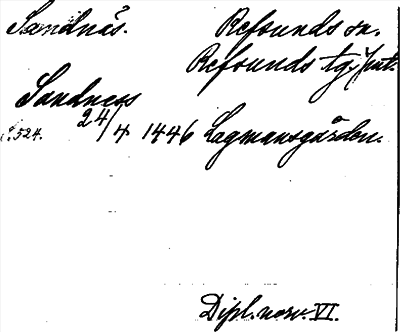 Sandnäs. Refsunds sn.
Refsunds tg, Jmt.
Sandness
24/4 1446 Lagmansgården.
S. 524.
Dipl. norv. VI.